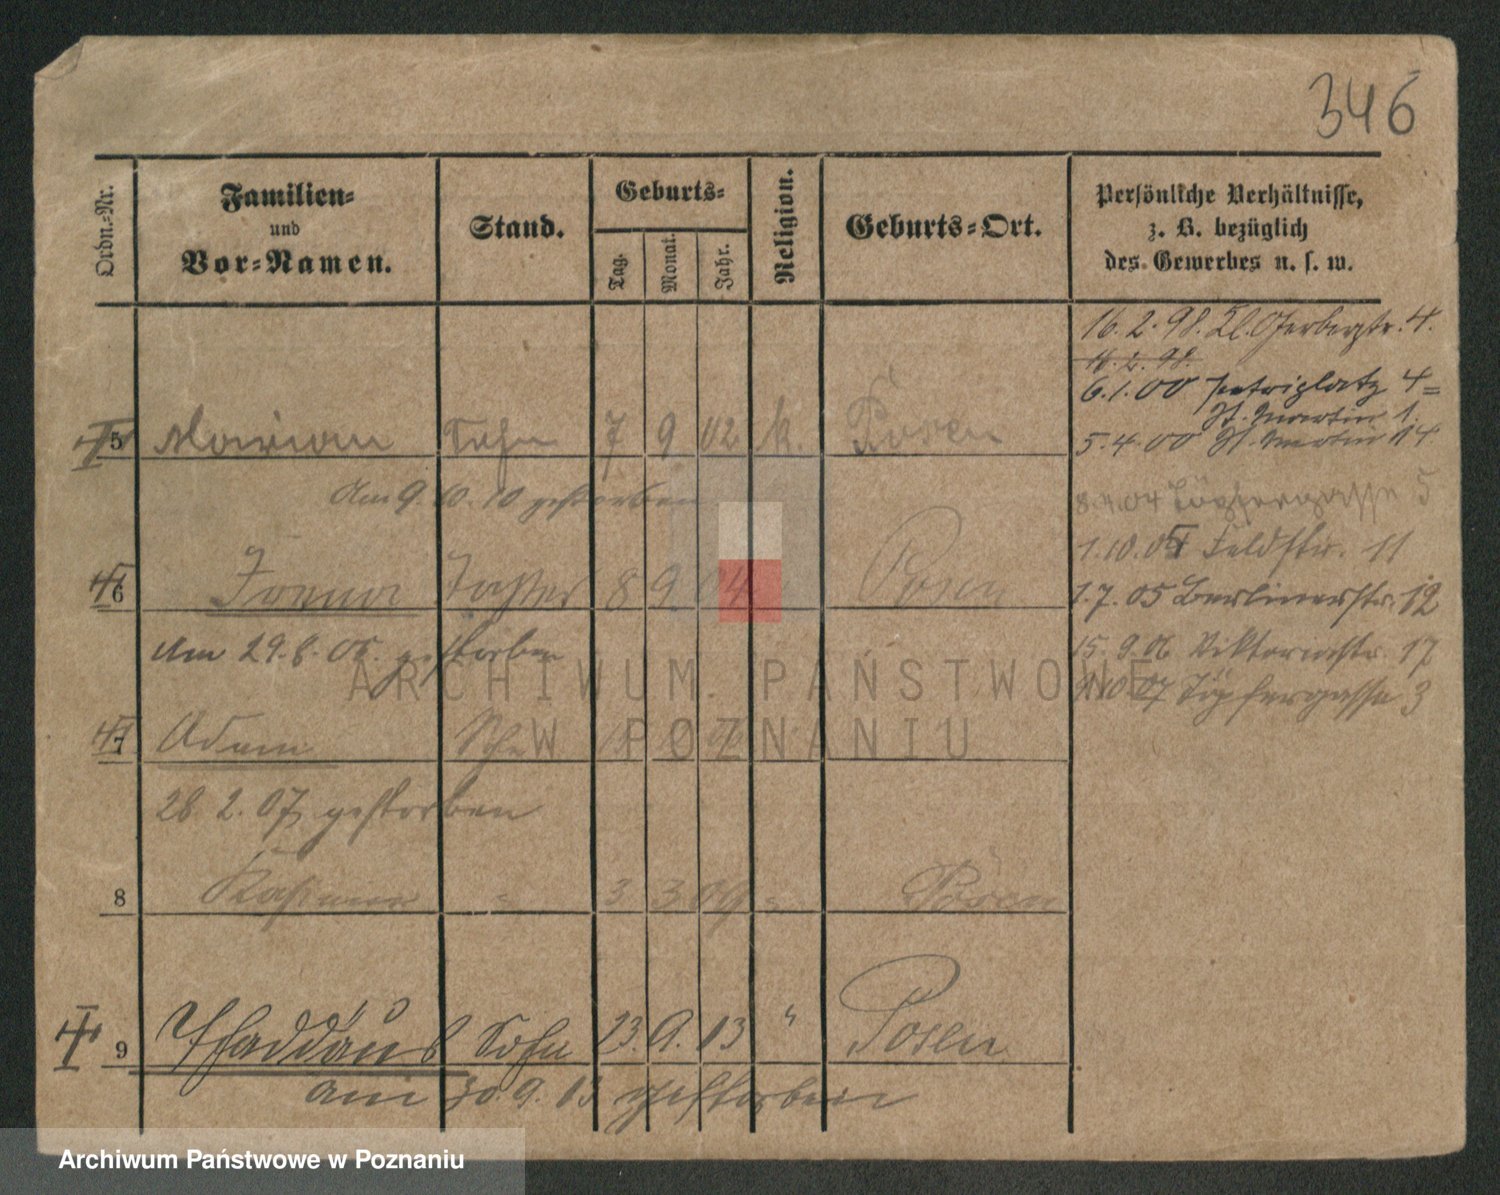 346
Ordn.-Nr.
Familien-
und
Vor-Namen.
Stand.
Geburts-
Tag.
Monat.
Jahr.
Religion.
Geburts-Ort.
Persönliche Verhältnisse,
z. B. bezüglich
des Gewerbes u. s. w.
16. 2. 98. Kl. Gerberstr. 4.
16. 2. 98.
6. 1. 00 Petriplatz 4 =
St. Martin 1.
5 Marian Sohn 7 9 02 k. Posen
5. 4. 00 St. Martin 14
Am 9. 10. 10 gestorben
8. 4. 04 Töpfergasse 5
1. 10. 04 Feldstr. 11
6 Irena Tochter 8 9. 04 Posen
1. 7. 05 Berlinerstr. 12
Am 29. 8. 05. gestorben
15. 9. 06 Viktoriastr. 17
10 07 Töpfergasse 3
7 Adam Sohn
28. 2. 07 gestorben
8 Kasimir " 3 3 09 " Posen
9 Thaddäus Sohn 23. 9. 13 " Posen
am 30. 9. 13 gestorben
ARCHIWUM PAŃSTWOWE
W POZNANIU
Archiwum Państwowe w Poznaniu